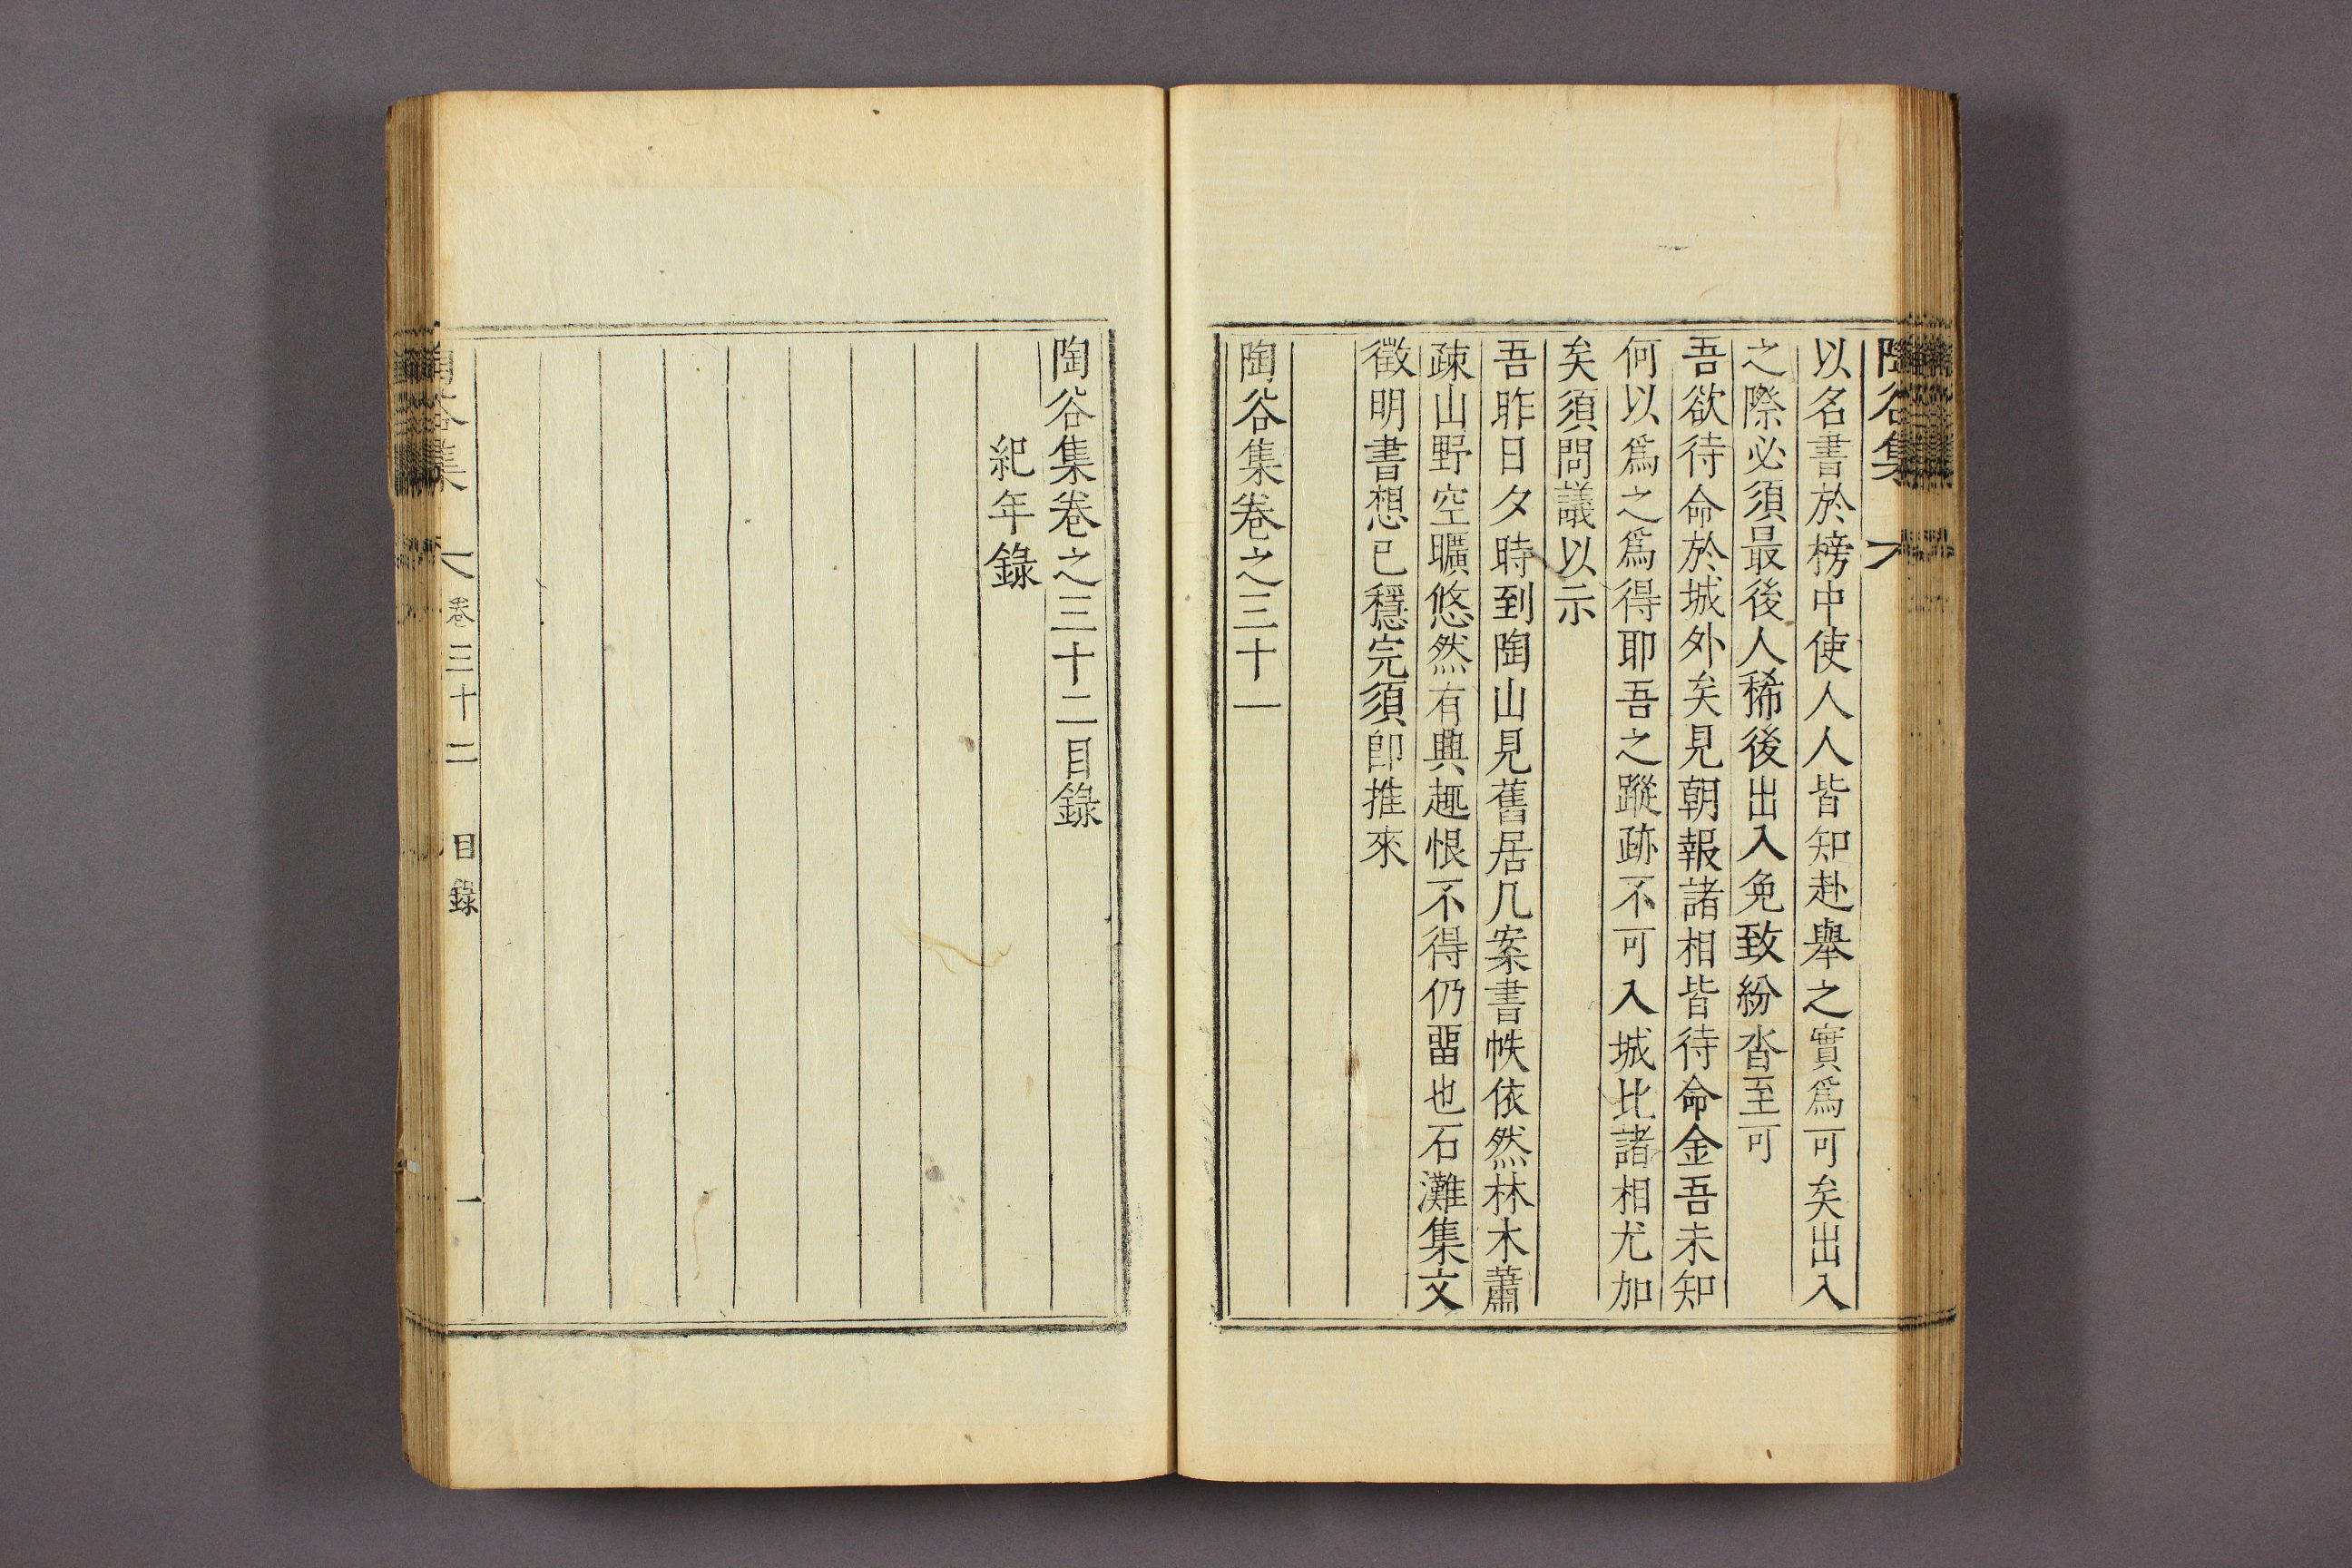 陶谷集
以名書於榜中使人人皆知赴擧之實爲可矣出入
之際必須最後人稀後出入免致紛沓至可
吾欲待命於城外矣見朝報諸相皆待命金吾未知
何以爲之爲得耶吾之蹤跡不可入城比諸相尤加
矣須問議以示
吾昨日夕時到陶山見舊居几案書帙依然林木蕭
疎山野空曠悠然有興趣恨不得仍留也石灘集文
徵明書想已穩完須卽推來
陶谷集卷之三十一
陶谷集卷之三十二目錄
紀年錄
陶谷集 卷三十二 目錄 一